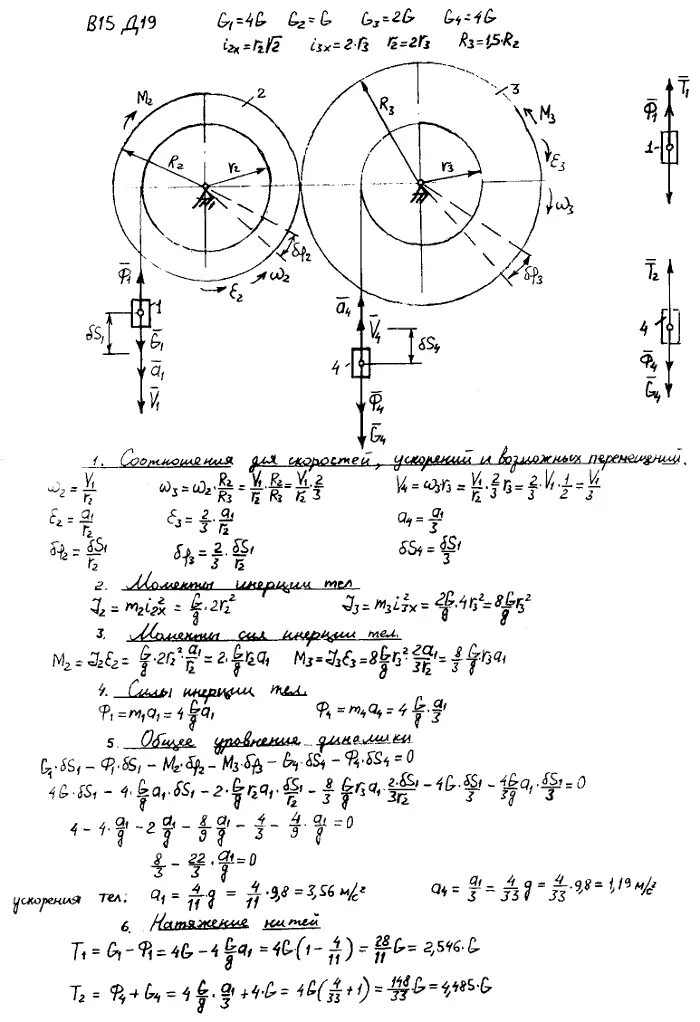 В15 Д19 G₁=4G G₂=G G₃=2G G₄=4G
i₂ₓ=r₂√2 i₃ₓ=2·r₃ r₂=2r₃ R₃=1,5·R₂
M₂ 2 R₂ r₂ δφ₂ ω₂ ε₂
3 R₃ r₃ M₃ ε₃ ω₃ δφ₃
Φ̄₁ 1 δS₁ Ḡ₁ ā₁ V̄₁
ā₄ V̄₄ δS₄ 4 Φ̄₄ Ḡ₄
T̄₁ Φ̄₁ 1
T̄₂ 4 Φ̄₄ Ḡ₄
1. Соотношения для скоростей, ускорений и возможных перемещений.
ω₂=V₁/r₂ ω₃=ω₂·R₂/R₃=V₁/r₂·R₂/R₃=V₁/r₂·2/3 V₄=ω₃r₃=V₁/r₂·2/3 r₃=2/3·V₁·1/2=V₁/3
ε₂=a₁/r₂ ε₃=2/3·a₁/r₂ a₄=a₁/3
δφ₂=δS₁/r₂ δφ₃=2/3·δS₁/r₂ δS₄=δS₁/3
2. Моменты инерции тел
J₂=m₂i₂ₓ²=G/g·2r₂² J₃=m₃i₃ₓ²=2G/g·4r₃²=8G/g r₃²
3. Моменты сил инерции тел.
M₂=J₂ε₂=G/g·2r₂²·a₁/r₂=2·G/g r₂a₁ M₃=J₃ε₃=8G/g r₃²·2a₁/3r₂=8/3 G/g r₃a₁
4. Силы инерции тел.
Φ₁=m₁a₁=4G/g a₁ Φ₄=m₄a₄=4G/g·a₁/3
5. Общее уровнение динамики
G₁·δS₁-Φ₁·δS₁-M₂·δφ₂-M₃·δφ₃-G₄·δS₄-Φ₄·δS₄=0
4G·δS₁-4·G/g a₁·δS₁-2·G/g r₂a₁·δS₁/r₂-8/3 G/g r₃a₁·2·δS₁/3r₂-4G·δS₁/3-4G/3g a₁·δS₁/3=0
4-4·a₁/g-2a₁/g-8/9 a₁/g-4/3-4/9·a₁/g=0
8/3-22/3·a₁/g=0
ускорения тел: a₁=4/11·g=4/11·9,8=3,56 м/с² a₄=a₁/3=4/33 g=4/33·9,8=1,19 м/с²
6. Натяжение нитей
T₁=G₁-Φ₁=4G-4G/g a₁=4G·(1-4/11)=28/11 G=2,546·G
T₂=Φ₄+G₄=4G/g·a₁/3+4·G=4G(4/33+1)=148/33·G=4,485·G